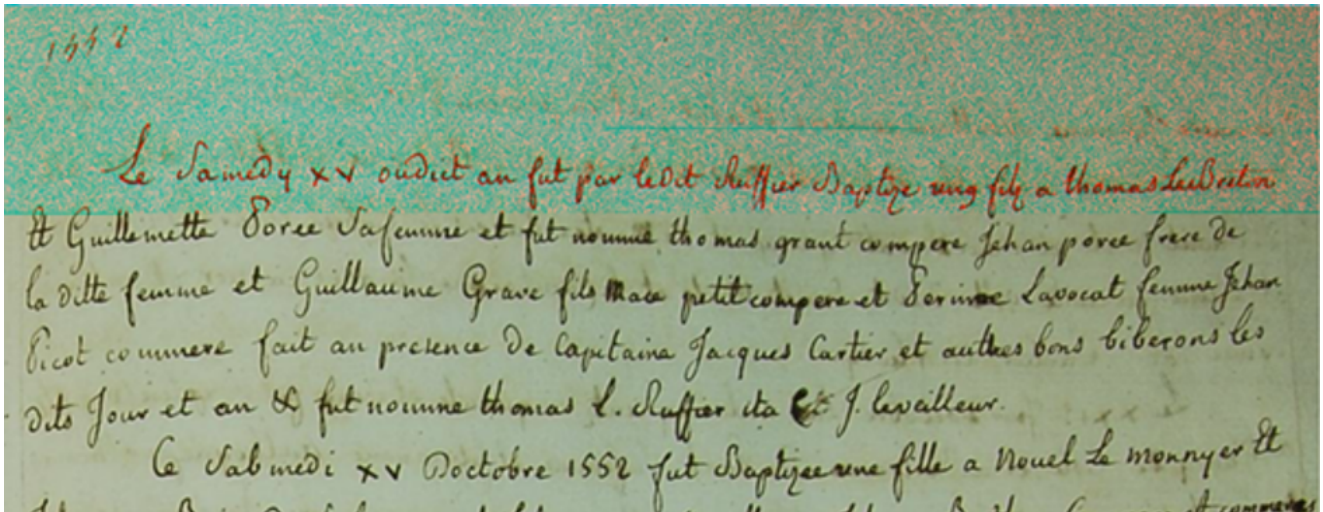 1552
Le Samedy xv oudict an fut par ledit Ruffier Baptize ung filz a thomas LeBreton
Et Guillemette Poree Safemme et fut nomme thomas grant compere Jehan poree frere de
la ditte femme et Guillaume Grave fils Mace petit compere et Perinne Lavocat femme Jehan
Picot commere fait au presence de Capitaine Jacques Cartier et autres bons biberons les
dits Jour et an & fut nomme thomas L. Ruffier ita est J. leveilleur.
Ce Sabmedi xv Doctobre 1552 fut Baptizee une fille a Nouel Le monnyer Et